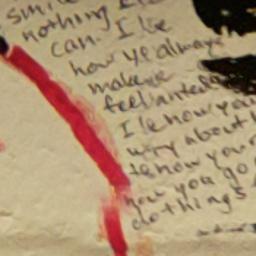 smile
nothing
can. I lve
how ye always
make me
feel wanted
I know you
wory about
know your
how you go
do things